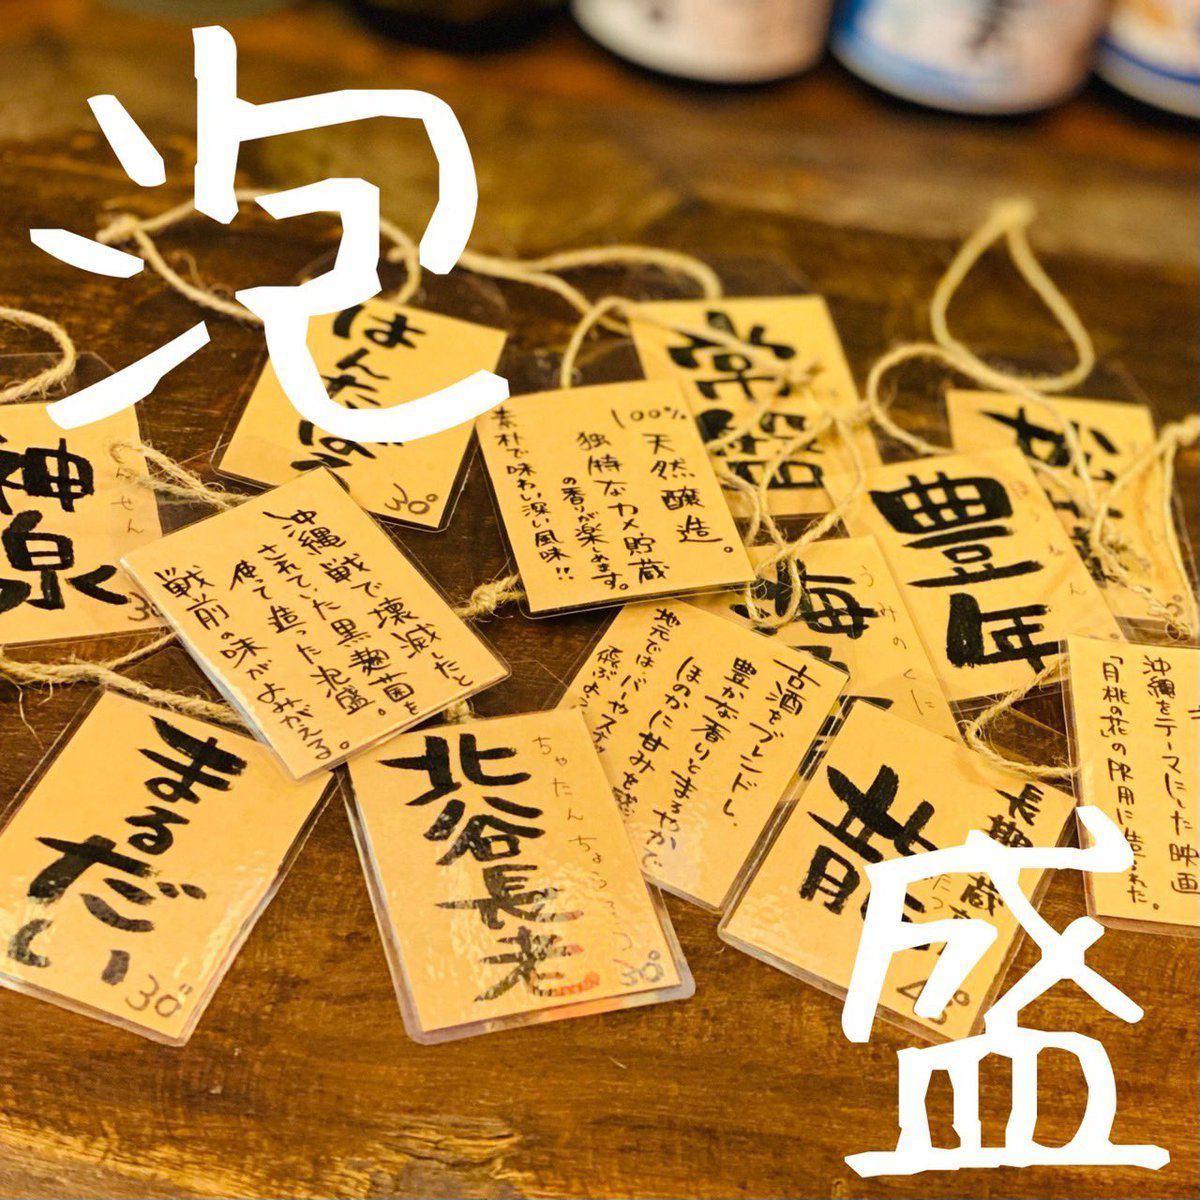 泡
盛
ほんだぼう
30°
常盤
100%
天然醸造。
独特なカメ貯蔵
の香りが楽しめます。
素朴で味わい深い風味!!
神泉
沖縄戦で壊滅したと
されていた黒麹菌を
使って造った泡盛。
戦前の味がよみがえる。
豊年
海
うみのくに
古酒をブレンドし、
豊かな香りとまろやかで
ほのかに甘みを
地元では、バーやス
沖縄をテーマにした映画
「月桃の花」のPR用に造られた。
まるだい
30°
北谷長老
ちゃたんちょうろう
30°